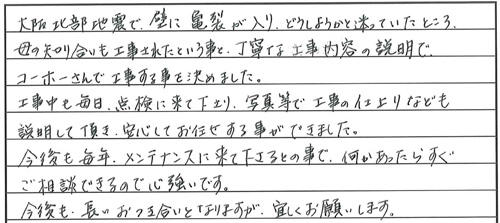 大阪北部地震で、壁に亀裂が入り、どうしようかと迷っていたところ、
母の知り合いも工事されたという事と、丁寧な工事内容の説明で、
コーホーさんで工事する事を決めました。
工事中も毎日、点検に来て下さり、写真等で工事の仕上りなども
説明して頂き、安心してお任せする事ができました。
今後も毎年、メンテナンスに来て下さるとの事で、何かあったらすぐ
ご相談できるので心強いです。
今後も、長いおつき合いとなりますが、宜しくお願いします。